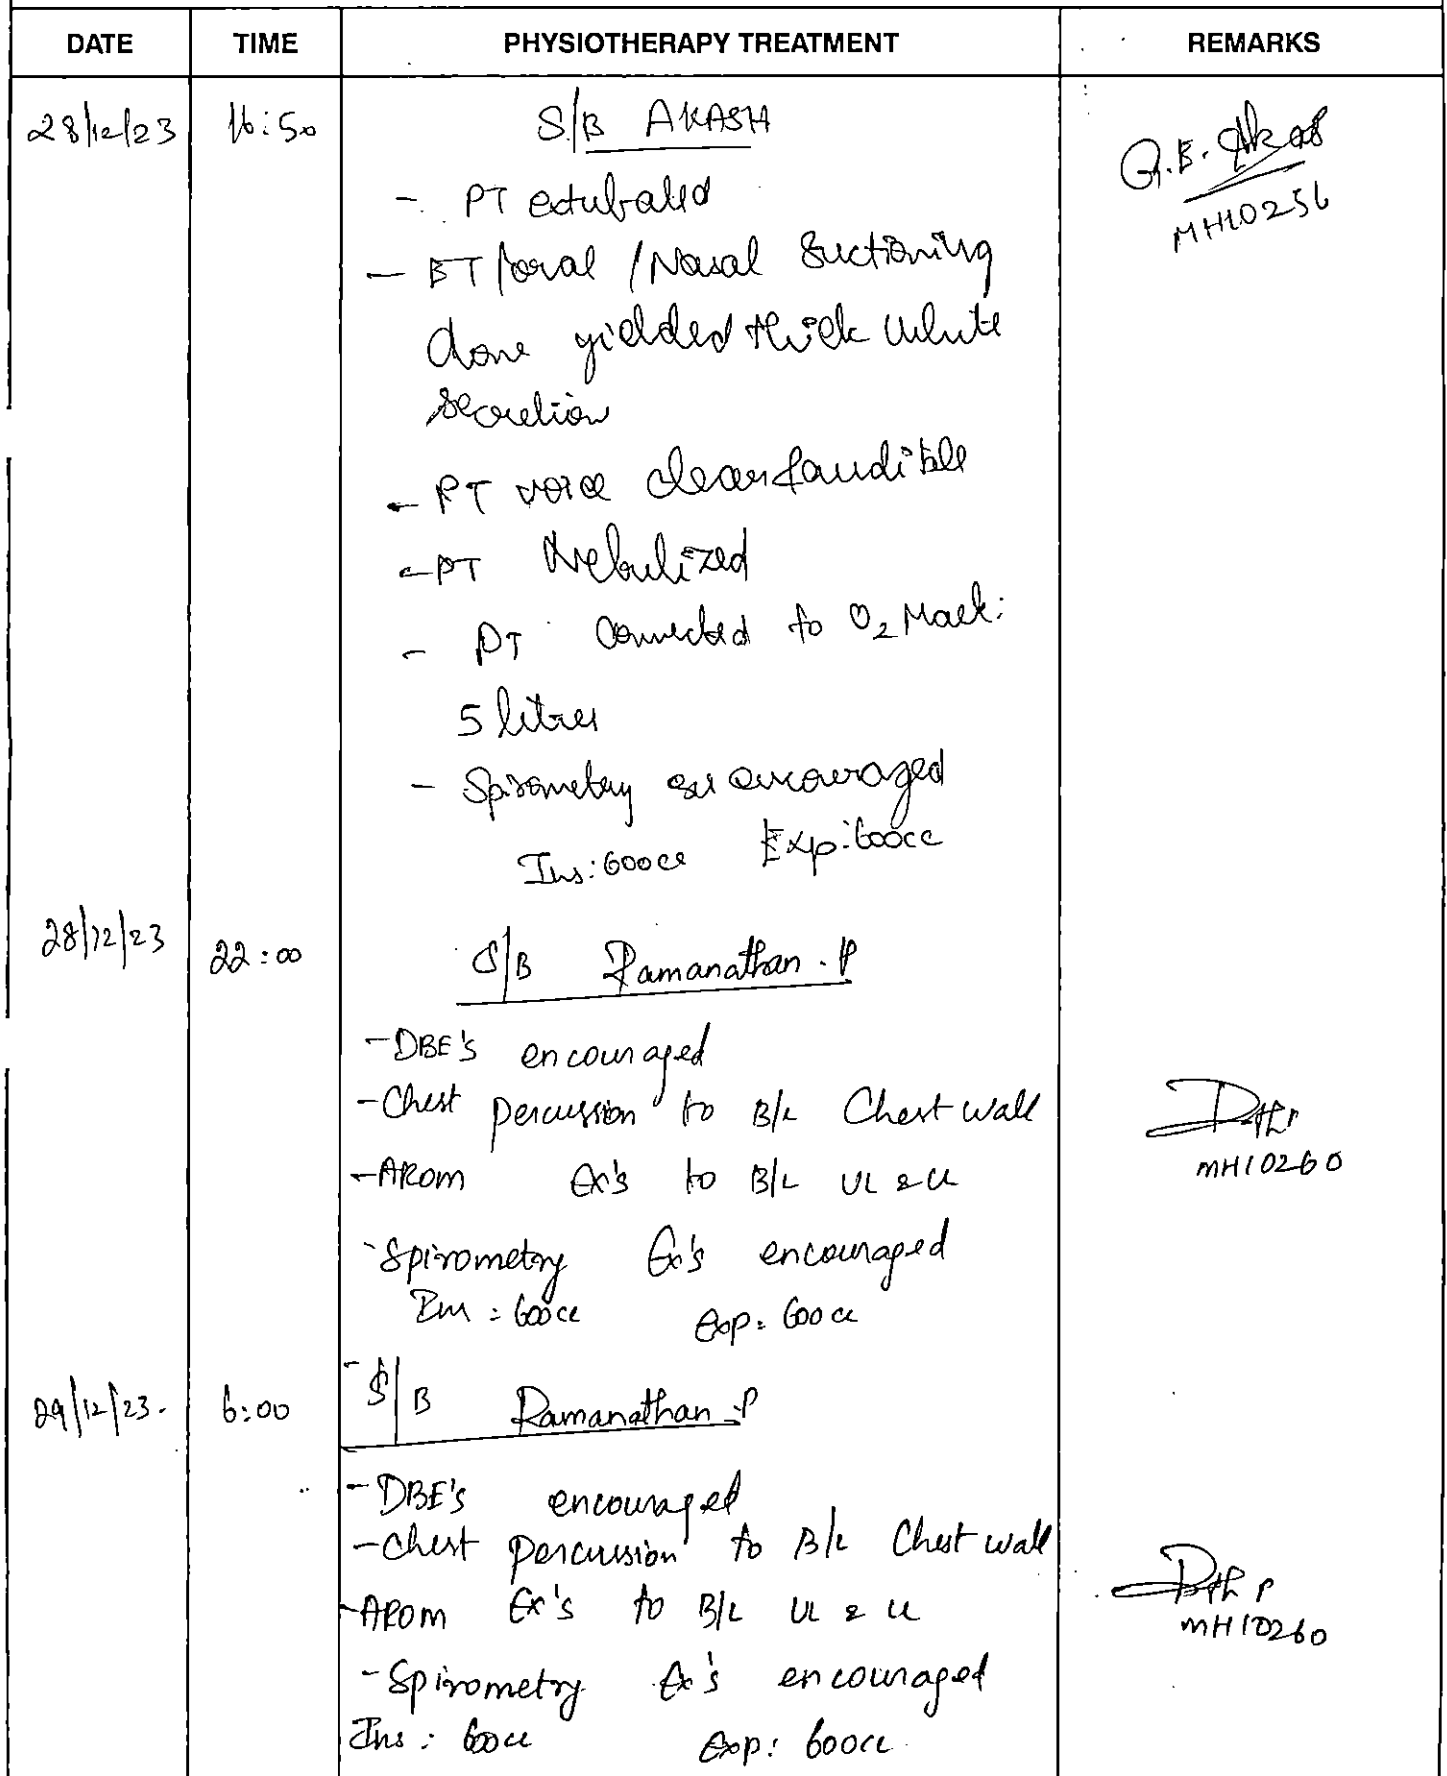 DATE TIME PHYSIOTHERAPY TREATMENT REMARKS
28/12/23 16:50 S/B AKASH
G.B. Akas
MH10256
- PT extubated
- ET/oral/Nasal Suctioning
done yielded thick white
secretion
- PT voice clear & audible
- PT Nebulized
- PT Connected to O2 Mask:
5 litres
- Spirometry exs encouraged
Ins: 600cc Exp: 600cc
28/12/23 22:00 S/B Ramanathan.P
- DBE's encouraged
- Chest percussion to B/L Chest wall
MH10260
- AROM Ex's to B/L UL & LL
- Spirometry Ex's encouraged
Ins = 600cc Exp: 600cc
29/12/23. 6:00 - S/B Ramanathan.P
- DBE's encouraged
- Chest percussion to B/L Chest wall
- AROM Ex's to B/L UL & LL
MH10260
- Spirometry Ex's encouraged
Ins: 600cc Exp: 600cc